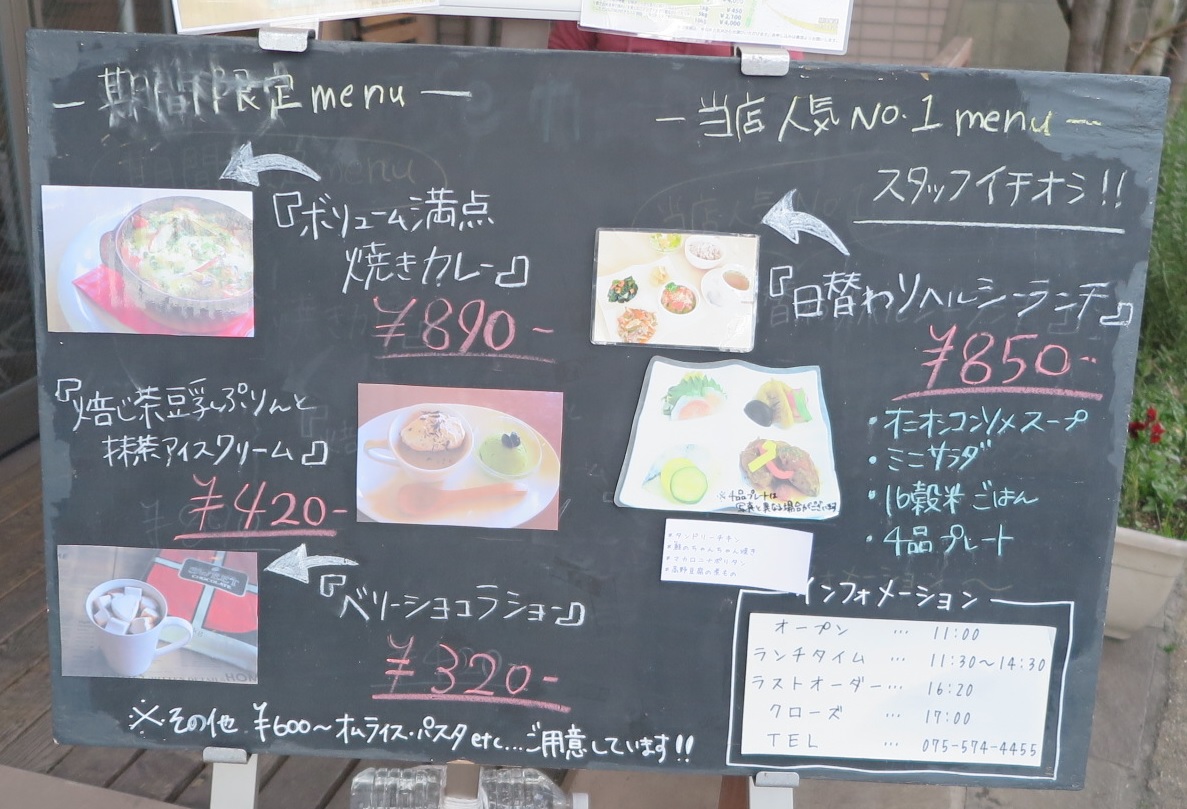 期間限定menu
『ボリューム満点
焼きカレー』
¥890-
『焙じ茶豆乳ぷりんと
抹茶アイスクリーム』
¥420-
『ベリーショコラショー』
¥320-
※その他 ¥600～オムライス・パスタetc...ご用意しています!!
当店人気No.1 menu
スタッフイチオシ!!
『日替わりヘルシーランチ』
¥850-
・オニオンコンソメスープ
・ミニサラダ
・16穀米ごはん
・4品プレート
※4品プレートは
写真と異なる場合がございます
*タンドリーチキン
*鮭のちゃんちゃん焼き
*マカロニナポリタン
*高野豆腐の煮もの
インフォメーション
オープン … 11:00
ランチタイム … 11:30～14:30
ラストオーダー… 16:20
クローズ … 17:00
TEL … 075-574-4455